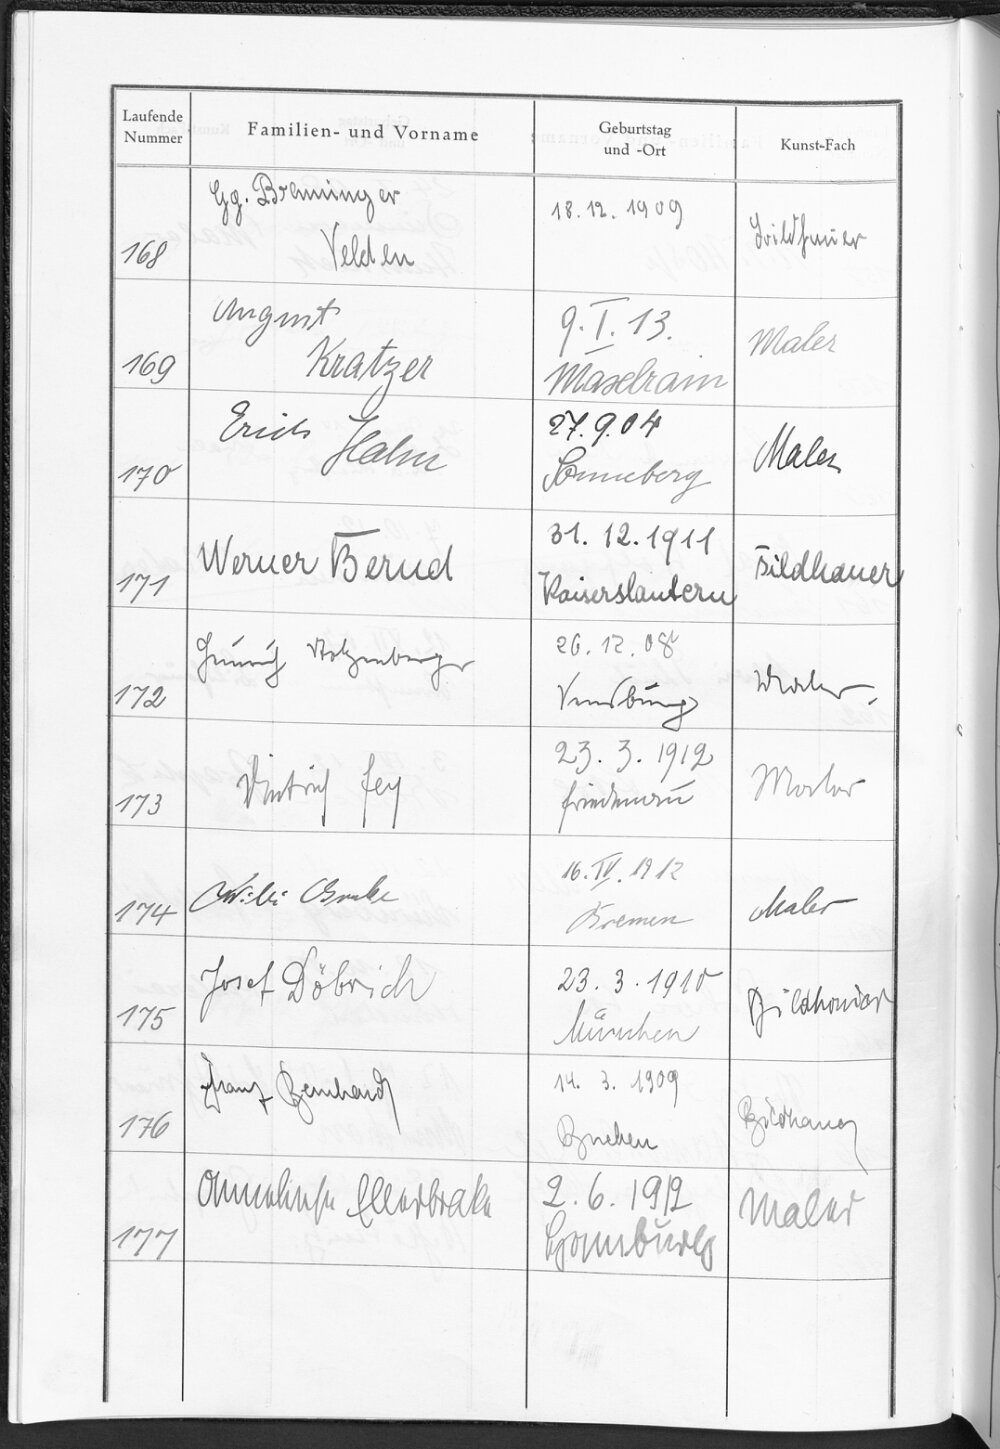 Laufende Nummer
Familien- und Vorname
Geburtstag und -Ort
Kunst-Fach
168 Gg. Brenninger 18.12.1909 Bildhauer
Velden
169 August 9. I. 13. Maler
Kratzer Maxlrain
170 Erich Hahn 27.9.04 Maler
Sonneberg
171 Werner Bernd 31.12.1911 Bildhauer
Kaiserslautern
172 Heinrich 26.12.08 Maler.
173 Dietrich Fey 23.3.1912 Maler
Friedenau
174 Willi 16. IV. 1912 Maler
Bremen
175 Josef Döbrich 23.3.1910 Bildhauer
München
176 Franz Bernhard 14.3.1909 Bildhauer
Buchen
177 Anneliese Ellerbrake 2.6.1912 Maler
Homburg